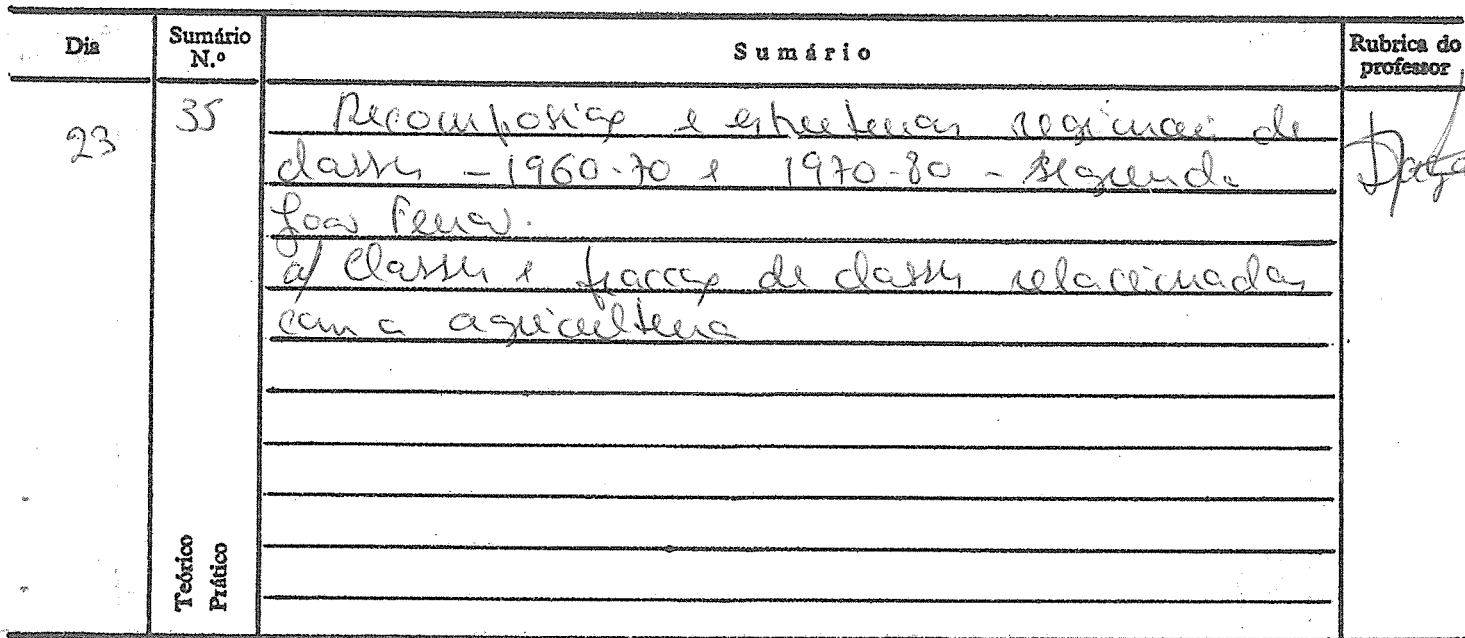 Dia
Sumário N.º
Sumário
Rubrica do professor
23
35
Recomposição e estruturas regionais de
classes - 1960-70 e 1970-80 - segundo
João Ferrão.
a/ Classes e fracções de classes relacionadas
com a agricultura
Teórico
Prático